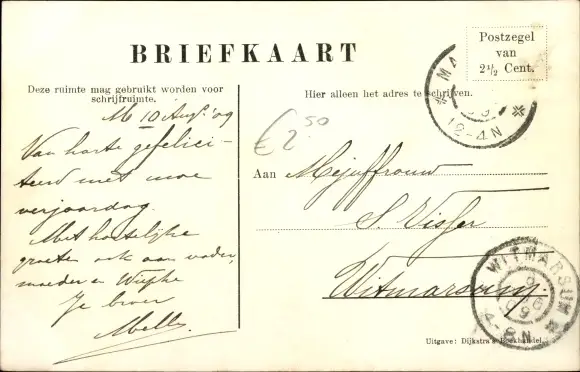 BRIEFKAART
Deze ruimte mag gebruikt worden voor
schrijfruimte.
M 10 Aug. '09
Van harte gefelici-
teerd met moe
verjaardag.
Met hartelijke
groeten ook aan vader,
moeder en Wiepke
Je broer
Melle
€ 2 50
Postzegel
van
2½ Cent.
Hier alleen het adres te schrijven.
12-4N
Aan Mejuffrouw
S. Visser
Witmarsum.
WITMARSUM
4-8N
Uitgave: Dijkstra's Boekhandel,